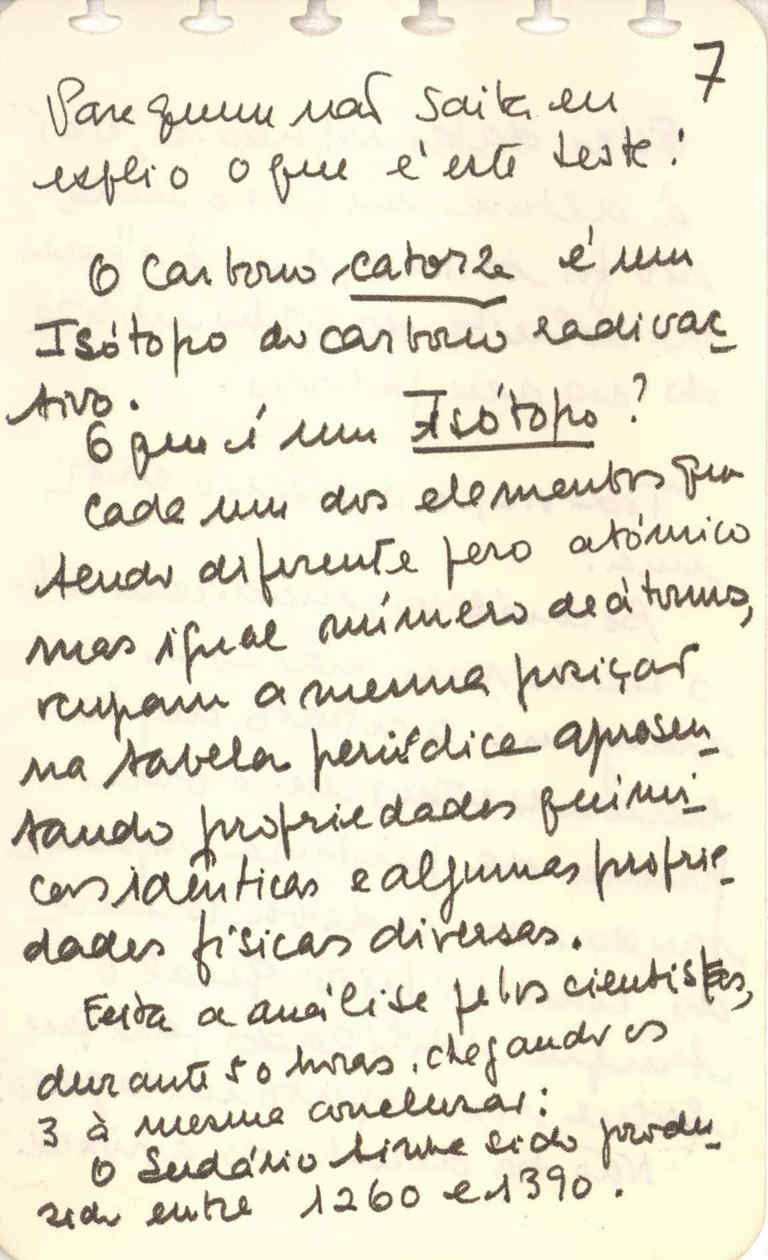 7
Para quem não saiba eu
explio o que é este teste:
O Carbono catorze é um
Isótopo do carbono radivac-
tivo.
O que é um Isótopo?
Cada um dos elementos que
tendo diferente peso atómico
mas igual número de átomos,
ocupam a mesma posição
na tabela periódica apresen-
tando propriedades quimi-
cas idênticas e algumas proprie-
dades físicas diversas.
Feita a análise pelos cientistas,
durante 50 horas, chegando os
3 à mesma conclusão:
O Sudário tinha sido produ-
zido entre 1260 e 1390.